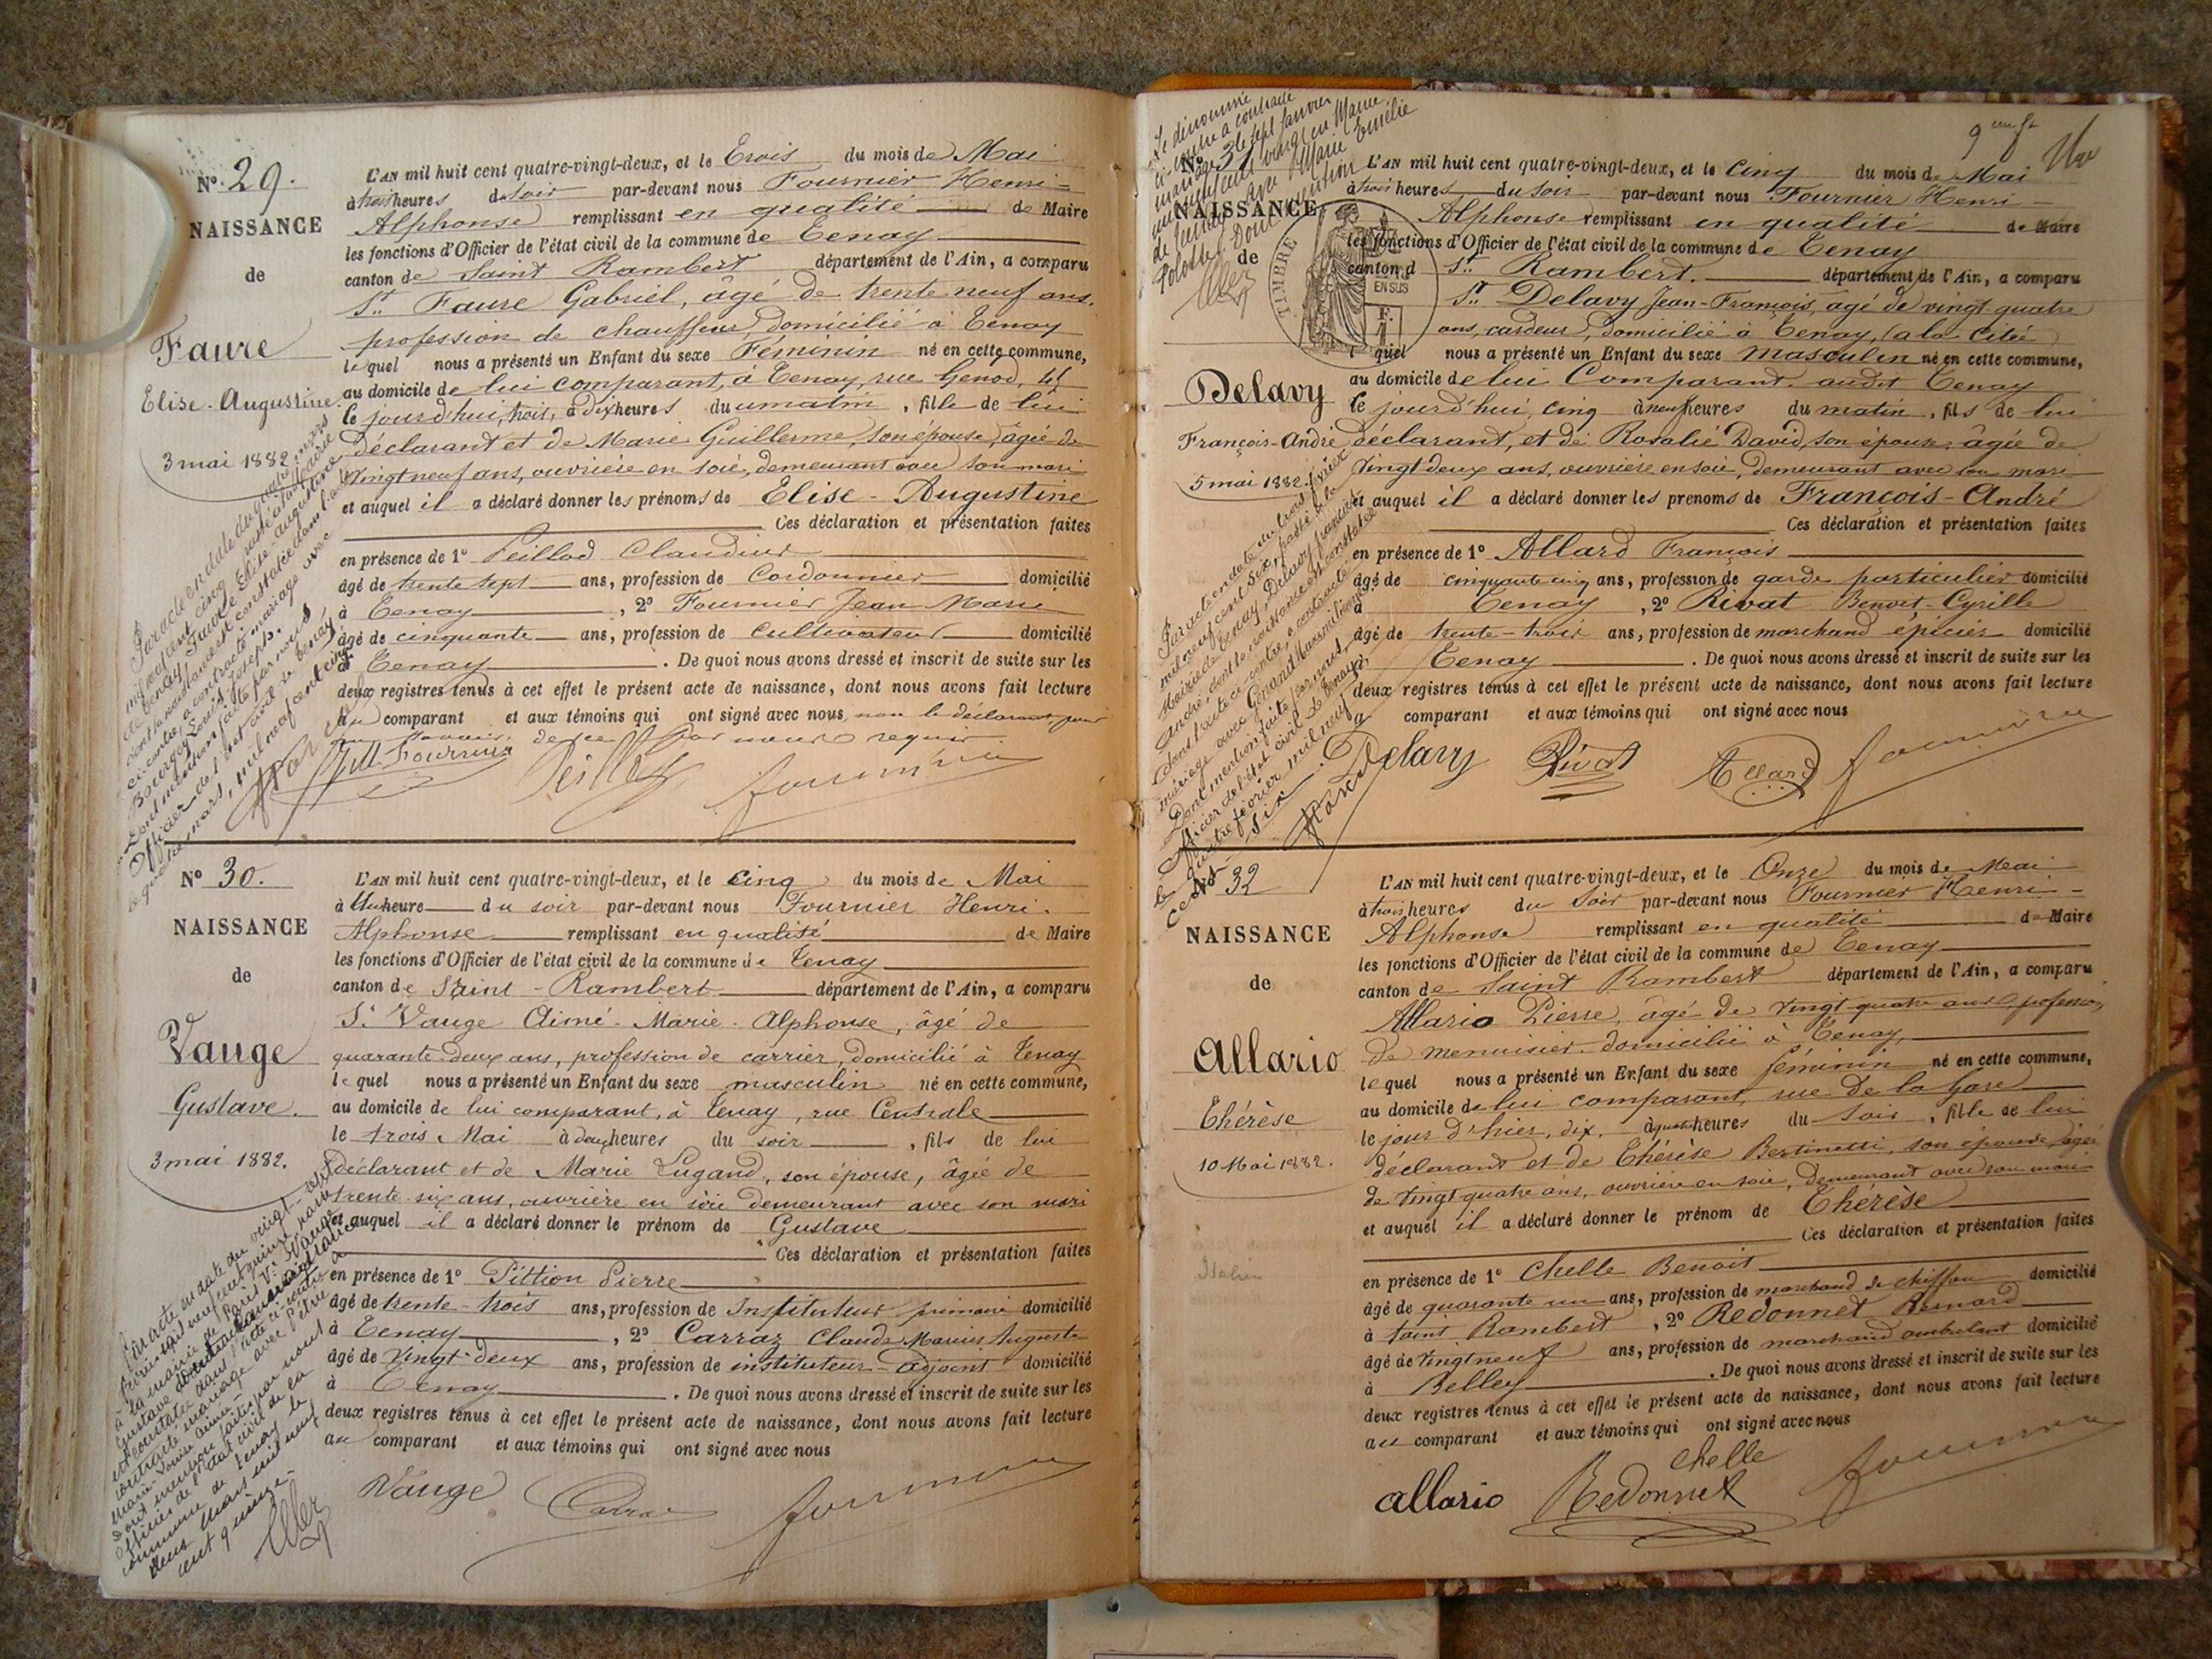 N° 29.
NAISSANCE
de
Faure
Elise-Augustine
3 mai 1882.
L'AN mil huit cent quatre-vingt-deux, et le Trois du mois de Mai
à trois heures du soir par-devant nous Fournier Henri-
Alphonse remplissant en qualité de Maire
les fonctions d'Officier de l'état civil de la commune de Tenay
canton de Saint Rambert département de l'Ain, a comparu
Sr. Faure Gabriel, âgé de trente neuf ans,
profession de chauffeur, domicilié à Tenay
lequel nous a présenté un Enfant du sexe Féminin né en cette commune,
au domicile de lui comparant, à Tenay, rue Genod,
le jourd'hui, trois, à dix heures du matin, fille de lui
déclarant et de Marie Guillerme, son épouse, âgée de
vingt neuf ans, ouvrière en soie, demeurant avec son mari
et auquel il a déclaré donner les prénoms de Elise-Augustine
Ces déclaration et présentation faites
en présence de 1° Peillod Claudius
âgé de trente sept ans, profession de Cordonnier domicilié
à Tenay, 2° Fournier Jean Marie
âgé de cinquante ans, profession de cultivateur domicilié
à Tenay. De quoi nous avons dressé et inscrit de suite sur les
deux registres tenus à cet effet le présent acte de naissance, dont nous avons fait lecture
au comparant et aux témoins qui ont signé avec nous, non le déclarant pour
ne savoir, de ce par nous requis.
Par acte en date du quatre mars
mil neuf cent cinq, passé à la Mairie
de Tenay, Faure Elise-Augustine
dont la naissance est constatée dans l'acte
ci-contre, a contracté mariage avec
Bourgey Louis Joseph.
Dont mention faite par nous
Officier de l'état civil de Tenay
le quatre mars, mil neuf cent cinq
N° 30.
NAISSANCE
de
Vauge
Gustave.
3 mai 1882.
L'AN mil huit cent quatre-vingt-deux, et le cinq du mois de Mai
à Une heure du soir par-devant nous Fournier Henri-
Alphonse remplissant en qualité de Maire
les fonctions d'Officier de l'état civil de la commune de Tenay
canton de Saint-Rambert département de l'Ain, a comparu
Sr. Vauge Aimé-Marie-Alphonse, âgé de
quarante-deux ans, profession de carrier, domicilié à Tenay
lequel nous a présenté un Enfant du sexe masculin né en cette commune,
au domicile de lui comparant, à Tenay, rue Centrale
le trois Mai à deux heures du soir, fils de lui
déclarant et de Marie Lugand, son épouse, âgée de
trente-six ans, ouvrière en soie demeurant avec son mari
et auquel il a déclaré donner le prénom de Gustave
Ces déclaration et présentation faites
en présence de 1° Pittion Pierre
âgé de trente-trois ans, profession de Instituteur primaire domicilié
à Tenay, 2° Carraz Claude Marius Auguste
âgé de vingt-deux ans, profession de instituteur-adjoint domicilié
à Tenay. De quoi nous avons dressé et inscrit de suite sur les
deux registres tenus à cet effet le présent acte de naissance, dont nous avons fait lecture
au comparant et aux témoins qui ont signé avec nous
Vauge Carraz Fournier
Par acte en date du vingt-sept
février mil neuf cent quinze passé
à la mairie de Paris Ve Vauge
Gustave dont la naissance
est constatée dans l'acte ci-contre a
contracté mariage avec
Marie Louise Aimée
Dont mention faite par nous
Officier de l'état civil de la
commune de Tenay le
deux mars mil neuf
cent quinze.
9me ft
N° 31
NAISSANCE
de
Delavy
François-André
5 mai 1882.
Le dénommé
ci-contre a contracté
mariage le sept janvier
mil neuf cent vingt en Mairie
de Tenay avec Marie Emélie
Dont mention
TIMBRE
EN SUS
L'AN mil huit cent quatre-vingt-deux, et le cinq du mois de Mai
à trois heures du soir par-devant nous Fournier Henri-
Alphonse remplissant en qualité de Maire
les fonctions d'Officier de l'état civil de la commune de Tenay
canton d St. Rambert. département de l'Ain, a comparu
Sr. Delavy Jean-François, âgé de vingt quatre
ans, cardeur, domicilié à Tenay, (à la Cité)
lequel nous a présenté un Enfant du sexe masculin né en cette commune,
au domicile de lui Comparant. audit Tenay
le jourd'hui, cinq à neuf heures du matin, fils de lui
déclarant, et de Rosalie David, son épouse, âgée de
vingt deux ans, ouvrière en soie, demeurant avec son mari
et auquel il a déclaré donner les prenoms de François-André
Ces déclaration et présentation faites
en présence de 1° Allard François
âgé de cinquante cinq ans, profession de garde particulier domicilié
à Tenay, 2° Rivat Benoit-Cyrille
âgé de trente-trois ans, profession de marchand épicier domicilié
à Tenay. De quoi nous avons dressé et inscrit de suite sur les
deux registres tenus à cet effet le présent acte de naissance, dont nous avons fait lecture
au comparant et aux témoins qui ont signé avec nous
Delavy Rivat Allard Fournier
Par acte en date du trois février
mil neuf cent six, passé à la
Mairie de Tenay, Delavy François
André, dont la naissance est constatée
dans l'acte ci-contre, a contracté
mariage avec
Dont mention faite par nous,
Officier de l'état civil de Tenay,
le quatre février mil neuf
cent six.
N° 32
NAISSANCE
de
Allario
Thérèse
10 Mai 1882.
Italien
L'AN mil huit cent quatre-vingt-deux, et le Onze du mois de Mai
à trois heures du Soir par-devant nous Fournier Henri-
Alphonse remplissant en qualité de Maire
les fonctions d'Officier de l'état civil de la commune de Tenay
canton de Saint Rambert département de l'Ain, a comparu
Allario Pierre, âgé de vingt quatre ans, profession
de menuisier. domicilié à Tenay,
lequel nous a présenté un Enfant du sexe féminin né en cette commune,
au domicile de lui comparant, rue De la Gare
le jour d'hier, dix, à quatre heures du soir, fille de lui
déclarant et de Thérèse Bertinetti, son épouse, âgée
de vingt quatre ans, ouvrière en soie, demeurant avec son mari
et auquel il a déclaré donner le prénom de Thérèse
Ces déclaration et présentation faites
en présence de 1° Chelle Benoit
âgé de quarante un ans, profession de marchand de chiffon domicilié
à Saint Rambert, 2° Redonnet Bernard
âgé de vingt neuf ans, profession de marchand ambulant domicilié
à Belley. De quoi nous avons dressé et inscrit de suite sur les
deux registres tenus à cet effet le présent acte de naissance, dont nous avons fait lecture
au comparant et aux témoins qui ont signé avec nous
Chelle
allario Redonnet Fournier